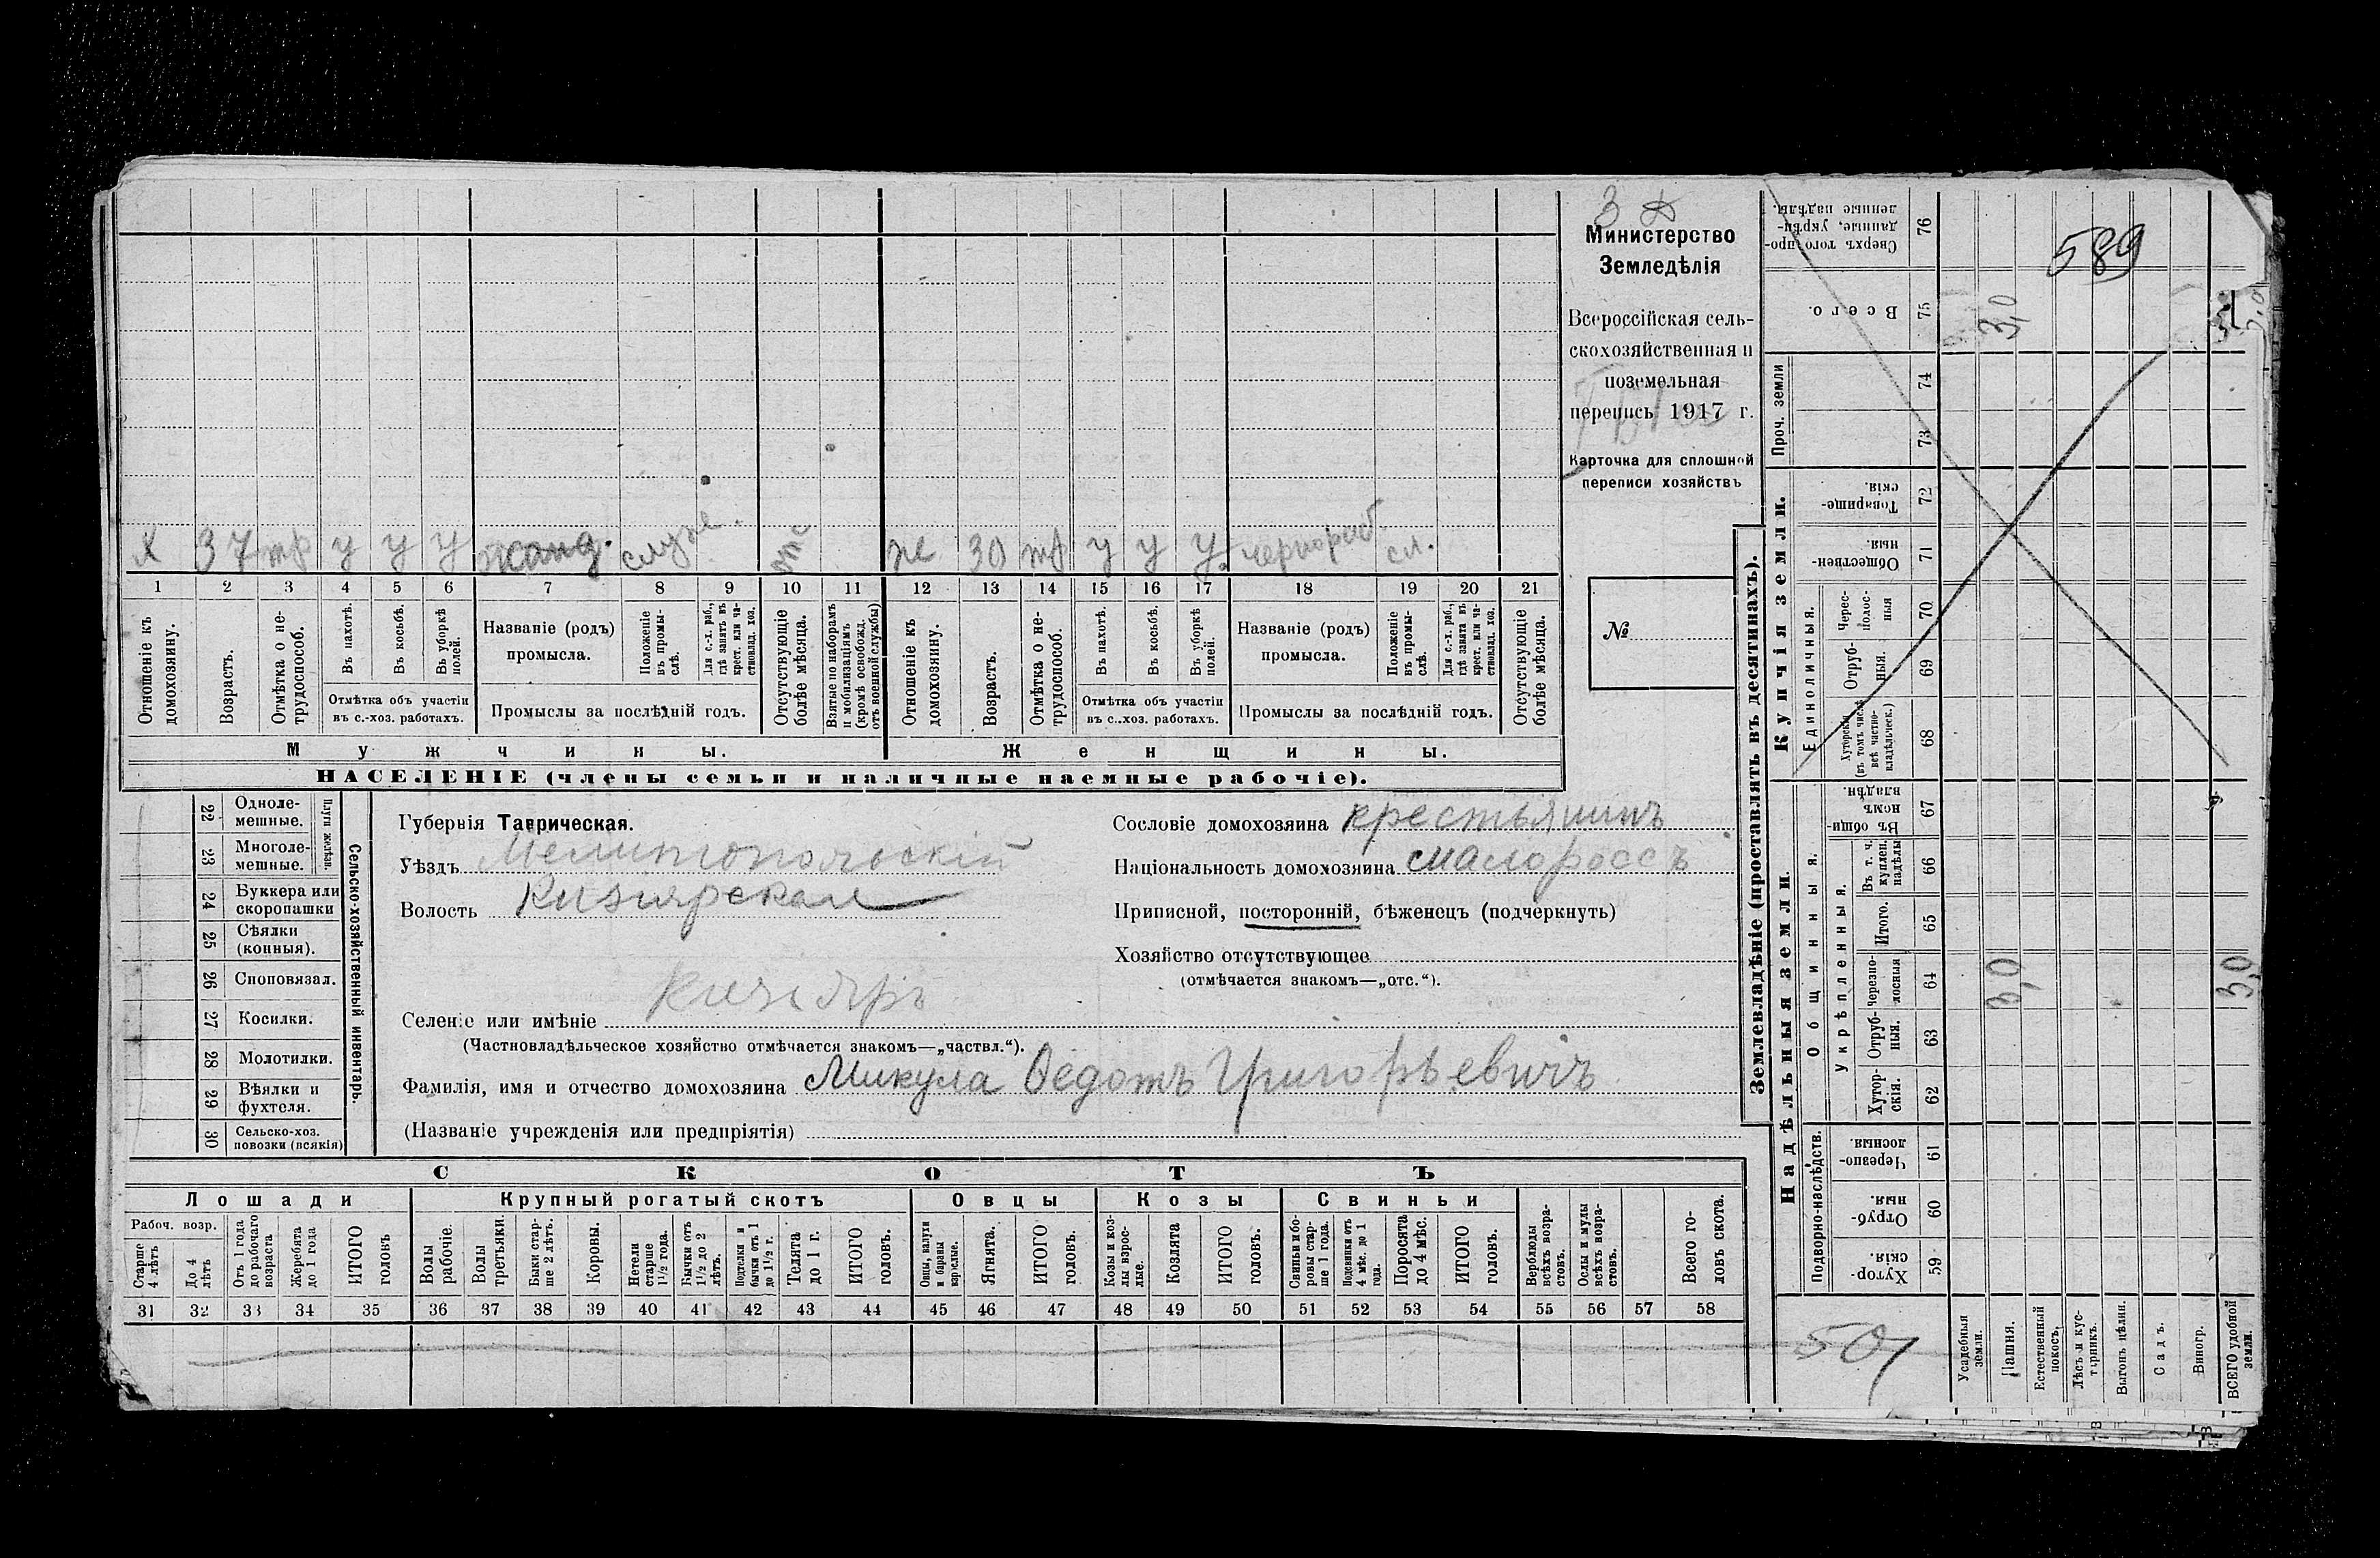 3
Министерство
Земледѣлія
Всероссійская сель-
скохозяйственная и
поземельная
перепись 1917 г.
Карточка для сплошной
переписи хозяйствъ
№
589
х 37 тр у у у служ. отс ж 30 тр у у у чернораб. сл.
1 2 3 4 5 6 7 8 9 10 11 12 13 14 15 16 17 18 19 20 21
Отношеніе къ домохозяину.
Возрастъ.
Отмѣтка о не-
трудоспособ.
Въ пахотѣ.
Въ косьбѣ.
Въ уборкѣ полей.
Отмѣтка объ участіи
въ с.-хоз. работахъ.
Названіе (родъ)
промысла.
Положеніе въ промы-
слѣ.
Для с.-х. раб., гдѣ занятъ въ крест. или ча-
стновлад. хоз.
Промыслы за послѣдній годъ.
Отсутствующіе болѣе мѣсяца.
Взятые по наборамъ и мобилизаціямъ (кромѣ освобожд. отъ военной службы)
Отношеніе къ домохозяину.
Возрастъ.
Отмѣтка о не-
трудоспособ.
Въ пахотѣ.
Въ косьбѣ.
Въ уборкѣ полей.
Отмѣтка объ участіи
въ с.-хоз. работахъ.
Названіе (родъ)
промысла.
Положеніе въ промы-
слѣ.
Для с.-х. раб., гдѣ занята въ крест. или ча-
стновлад. хоз.
Промыслы за послѣдній годъ.
Отсутствующіе болѣе мѣсяца.
Мужчины. Женщины.
НАСЕЛЕНІЕ (члены семьи и наличные наемные рабочіе).
22 Одноле-
мешные.
23 Многоле-
мешные.
Плуги желѣзн.
24 Буккера или
скоропашки
25 Сѣялки
(конныя).
26 Споповязал.
27 Косилки.
28 Молотилки.
29 Вѣялки и
фухтеля.
30 Сельско-хоз.
повозки (всякія)
Сельско-хозяйственный инвентарь.
Губернія Таврическая.
Уѣздъ Мелитопольскій
Волость Кизіярская
Селеніе или имѣніе Кизіяръ
(Частновладѣльческое хозяйство отмѣчается знакомъ—„частвл.“).
Фамилія, имя и отчество домохозяина Микула Ѳедотъ Григорьевичъ
(Названіе учрежденія или предпріятія)
Сословіе домохозяина крестьянинъ
Національность домохозяина малороссъ
Приписной, посторонній, бѣженецъ (подчеркнуть)
Хозяйство отсутствующее
(отмѣчается знакомъ—„отс.“).
СКОТЪ
Лошади Крупный рогатый скотъ Овцы Козы Свиньи
Рабоч. возр.
Старше 4 лѣтъ
До 4 лѣтъ
Отъ 1 года до рабочаго возраста
Жеребята до 1 года
ИТОГО головъ
Волы рабочіе.
Волы третьяки.
Быки стар-
ше 2 лѣтъ.
Коровы.
Нетели старше 1½ года.
Бычки отъ 1½ до 2 лѣтъ.
Подтелки и бычки отъ 1 до 1½ г.
Телята до 1 г.
ИТОГО головъ.
Овцы, валухи и бараны взрослые.
Ягнята.
ИТОГО головъ.
Козы и коз-
лы взрос-
лые.
Козлята
ИТОГО головъ.
Свиньи и бо-
ровы стар-
ше 1 года.
Подсвинки отъ 4 мѣс. до 1 года.
Поросята до 4 мѣс.
ИТОГО головъ.
Верблюды всѣхъ возра-
стовъ.
Ослы и мулы всѣхъ возра-
стовъ.
Всего го-
ловъ скота.
31 32 33 34 35 36 37 38 39 40 41 42 43 44 45 46 47 48 49 50 51 52 53 54 55 56 57 58
Землевладѣніе (проставлять въ десятинахъ).
Купчія земли.
Надѣльныя земли
Сверхъ того про-
данные, укрѣп-
ленные надѣлы.
76
Всего. 75 3,0
Проч. земли
74
73
Товарище-
скія. 72
Обществен-
ныя. 71
Единоличныя.
Черес-
полос-
ныя 70
Отруб-
ныя. 69
Хуторскія (въ томъ числѣ всѣ частно-
владѣльческ.) 68
Общинныя.
Въ общи-
номъ
владѣн. 67
Укрѣпленныя.
Въ т. ч. куплен. надѣлы 66
Итого. 65
Черезпо-
лосныя 64 3,0 3,0
Отруб-
ныя. 63
Хутор-
скія. 62
Подворно-наслѣдств.
Черезпо-
лосныя 61
Отруб-
ныя. 60
Хутор-
скія. 59
501
Усадебныя земли.
Пашня.
Естественный покосъ.
Лѣсъ и кус-
тарникъ.
Выгонъ цѣлин.
Садъ.
Виногр.
ВСЕГО удобной земли.